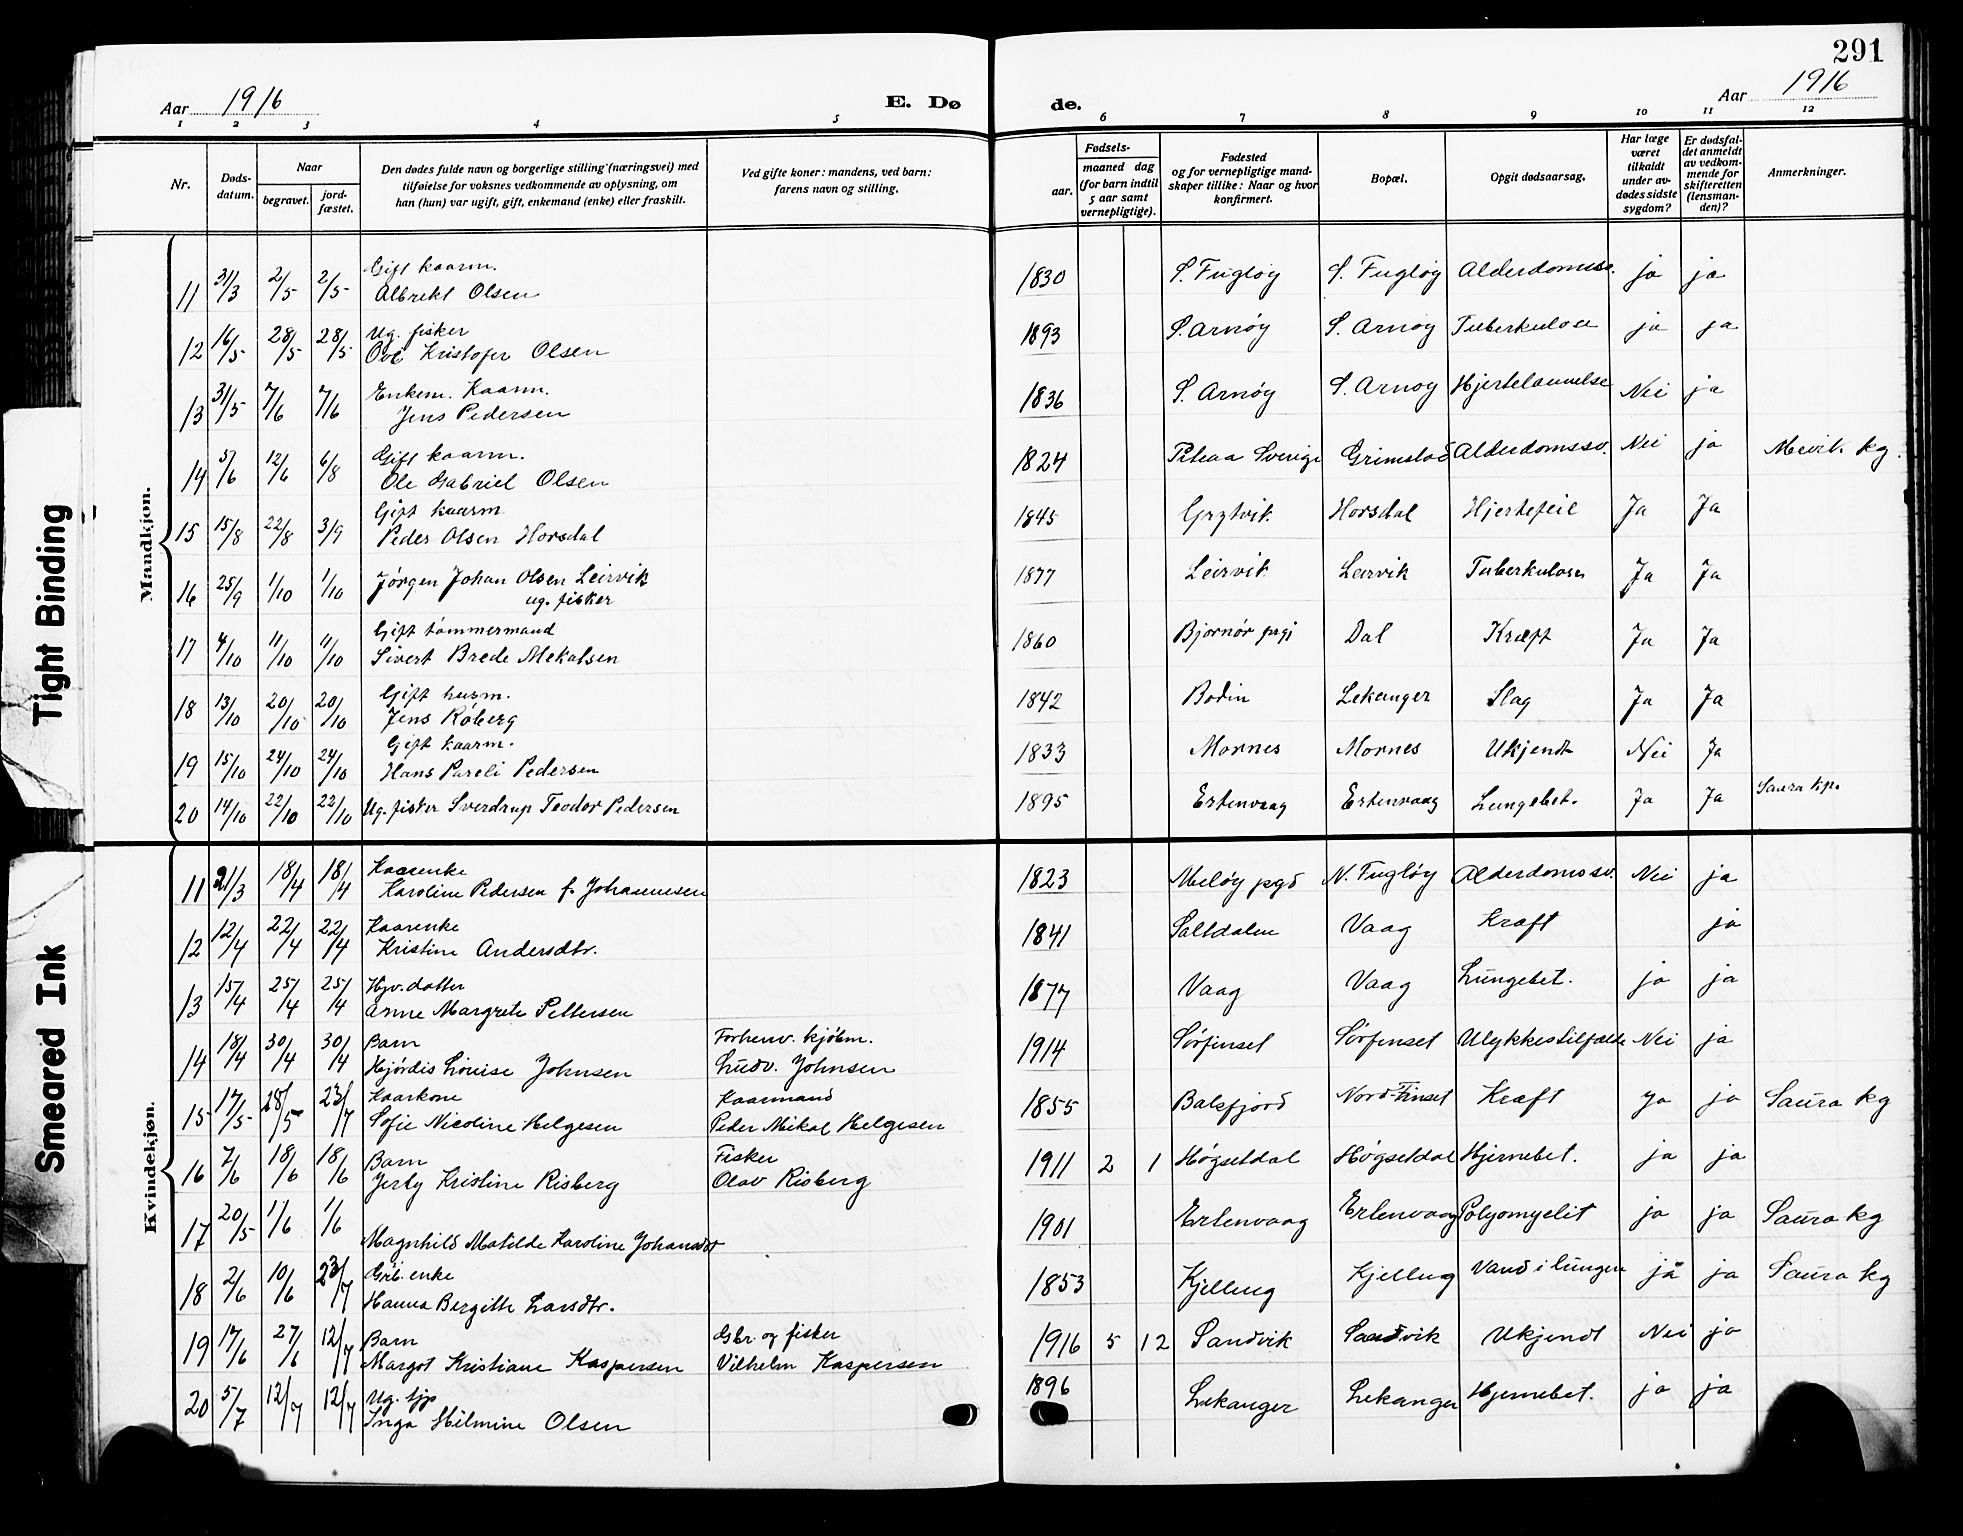 291
Aar 1916 E. Dø de. Aar 1916
1 2 3 4 5 6 7 8 9 10 11 12
Nr. Døds-datum. Naar begravet. jord-fæstet. Den dødes fulde navn og borgerlige stilling (næringsvei) med tilføielse for voksnes vedkommende av oplysning, om han (hun) var ugift, gift, enkemand (enke) eller fraskilt. Ved gifte koner: mandens, ved barn: farens navn og stilling. Fødsels- aar. maaned dag (for barn indtil 5 aar samt vernepligtige). Fødested og for vernepligtige mand-skaper tillike: Naar og hvor konfirmert. Bopæl. Opgit dødsaarsag. Har læge været tilkaldt under av-dødes sidste sygdom? Er dødsfal-det anmeldt av vedkom-mende for skifteretten (lensman-den)? Anmerkninger.
Mandkjøn.
11 31/3 2/5 2/5 Gift kaarm. Albrekt Olsen 1830 S. Fugløy S. Fugløy Alderdomssv. ja ja
12 16/5 28/5 28/5 Ug. fisker Ove Kristofer Olsen 1893 S. Arnøy S. Arnøy Tuberkulose ja ja
13 31/5 7/6 7/6 Enkem. Kaarm. Jens Pedersen 1836 S. Arnøy S. Arnøy Hjertelammelse Nei ja
14 5/6 12/6 6/8 Gift kaarm. Ole Gabriel Olsen 1824 Piteaa Sverige Grimstad Alderdomssv. Nei ja Mevik kg.
15 15/8 22/8 3/9 Gift kaarm Peder Olsen Horsdal 1845 Grytvik Horsdal Hjertefeil Ja Ja
16 25/9 1/10 1/10 Jørgen Johan Olsen Leirvik ug. fisker 1877 Leirvik Leirvik Tuberkulose Ja Ja
17 4/10 11/10 11/10 Gift tømmermand Sivert Brede Mekalsen 1860 Bjørnør prgj Dal Kræft Ja Ja
18 13/10 20/10 20/10 Gift husm. Jens Røberg 1842 Bodin Lekanger Slag Ja Ja
19 15/10 24/10 24/10 Gift kaarm. Hans Pareli Pedersen 1833 Mornes Mornes Ukjendt Nei Ja
20 14/10 22/10 22/10 Ug. fisker Sverdrup Teodor Pedersen 1895 Ertenvaag Ertenvaag Lungebet. Ja Ja Saura kp.
Kvindekjøn.
11 21/3 18/4 18/4 Kaarenke Karoline Pedersen f. Johannesen 1823 Meløy pgd N. Fugløy Alderdomssv. Nei ja
12 12/4 22/4 22/4 Kaarenke Kristine Andersdtr. 1841 Saltdalen Vaag Kræft ja
13 15/4 25/4 25/4 Hjv. datter Anne Margrete Pettersen 1877 Vaag Vaag Lungebet. ja ja
14 18/4 30/4 30/4 Barn Hjørdis Louise Johnsen Forhenv. kjøbm. Ludv. Johnsen 1914 Sørfinset Sørfinset Ulykkestilfælde Nei ja
15 17/5 28/5 23/7 Kaarkone Sofie Nicoline Helgesen Kaarmand Peder Mikal Helgesen 1855 Balsfjord Nord-Finset Kræft ja ja Saura kg
16 7/6 18/6 18/6 Barn Jerty Kristine Risberg Fisker Olav Risberg 1911 2 1 Høgsetdal Høgsetdal Hjernebet. ja ja
17 20/5 1/6 1/6 Magnhild Matilde Karoline Johansdt 1901 Ertenvaag Ertenvaag Polyomyelit ja ja Saura kg
18 2/6 10/6 23/7 Grb. enke Hanna Bergitte Larsdtr. 1853 Kjelling Kjelling Vand i lungen ja ja Saura kg
19 17/6 27/6 12/7 Barn Margot Kristiane Kaspersen Gbr. og fisker Vilhelm Kaspersen 1916 5 12 Sandvik Sandvik Ukjendt Nei ja
20 5/7 12/7 12/7 Ug. tjp Inga Hilmine Olsen 1896 Lekanger Lekanger Hjernebet. ja ja
Tight Binding
Smeared Ink